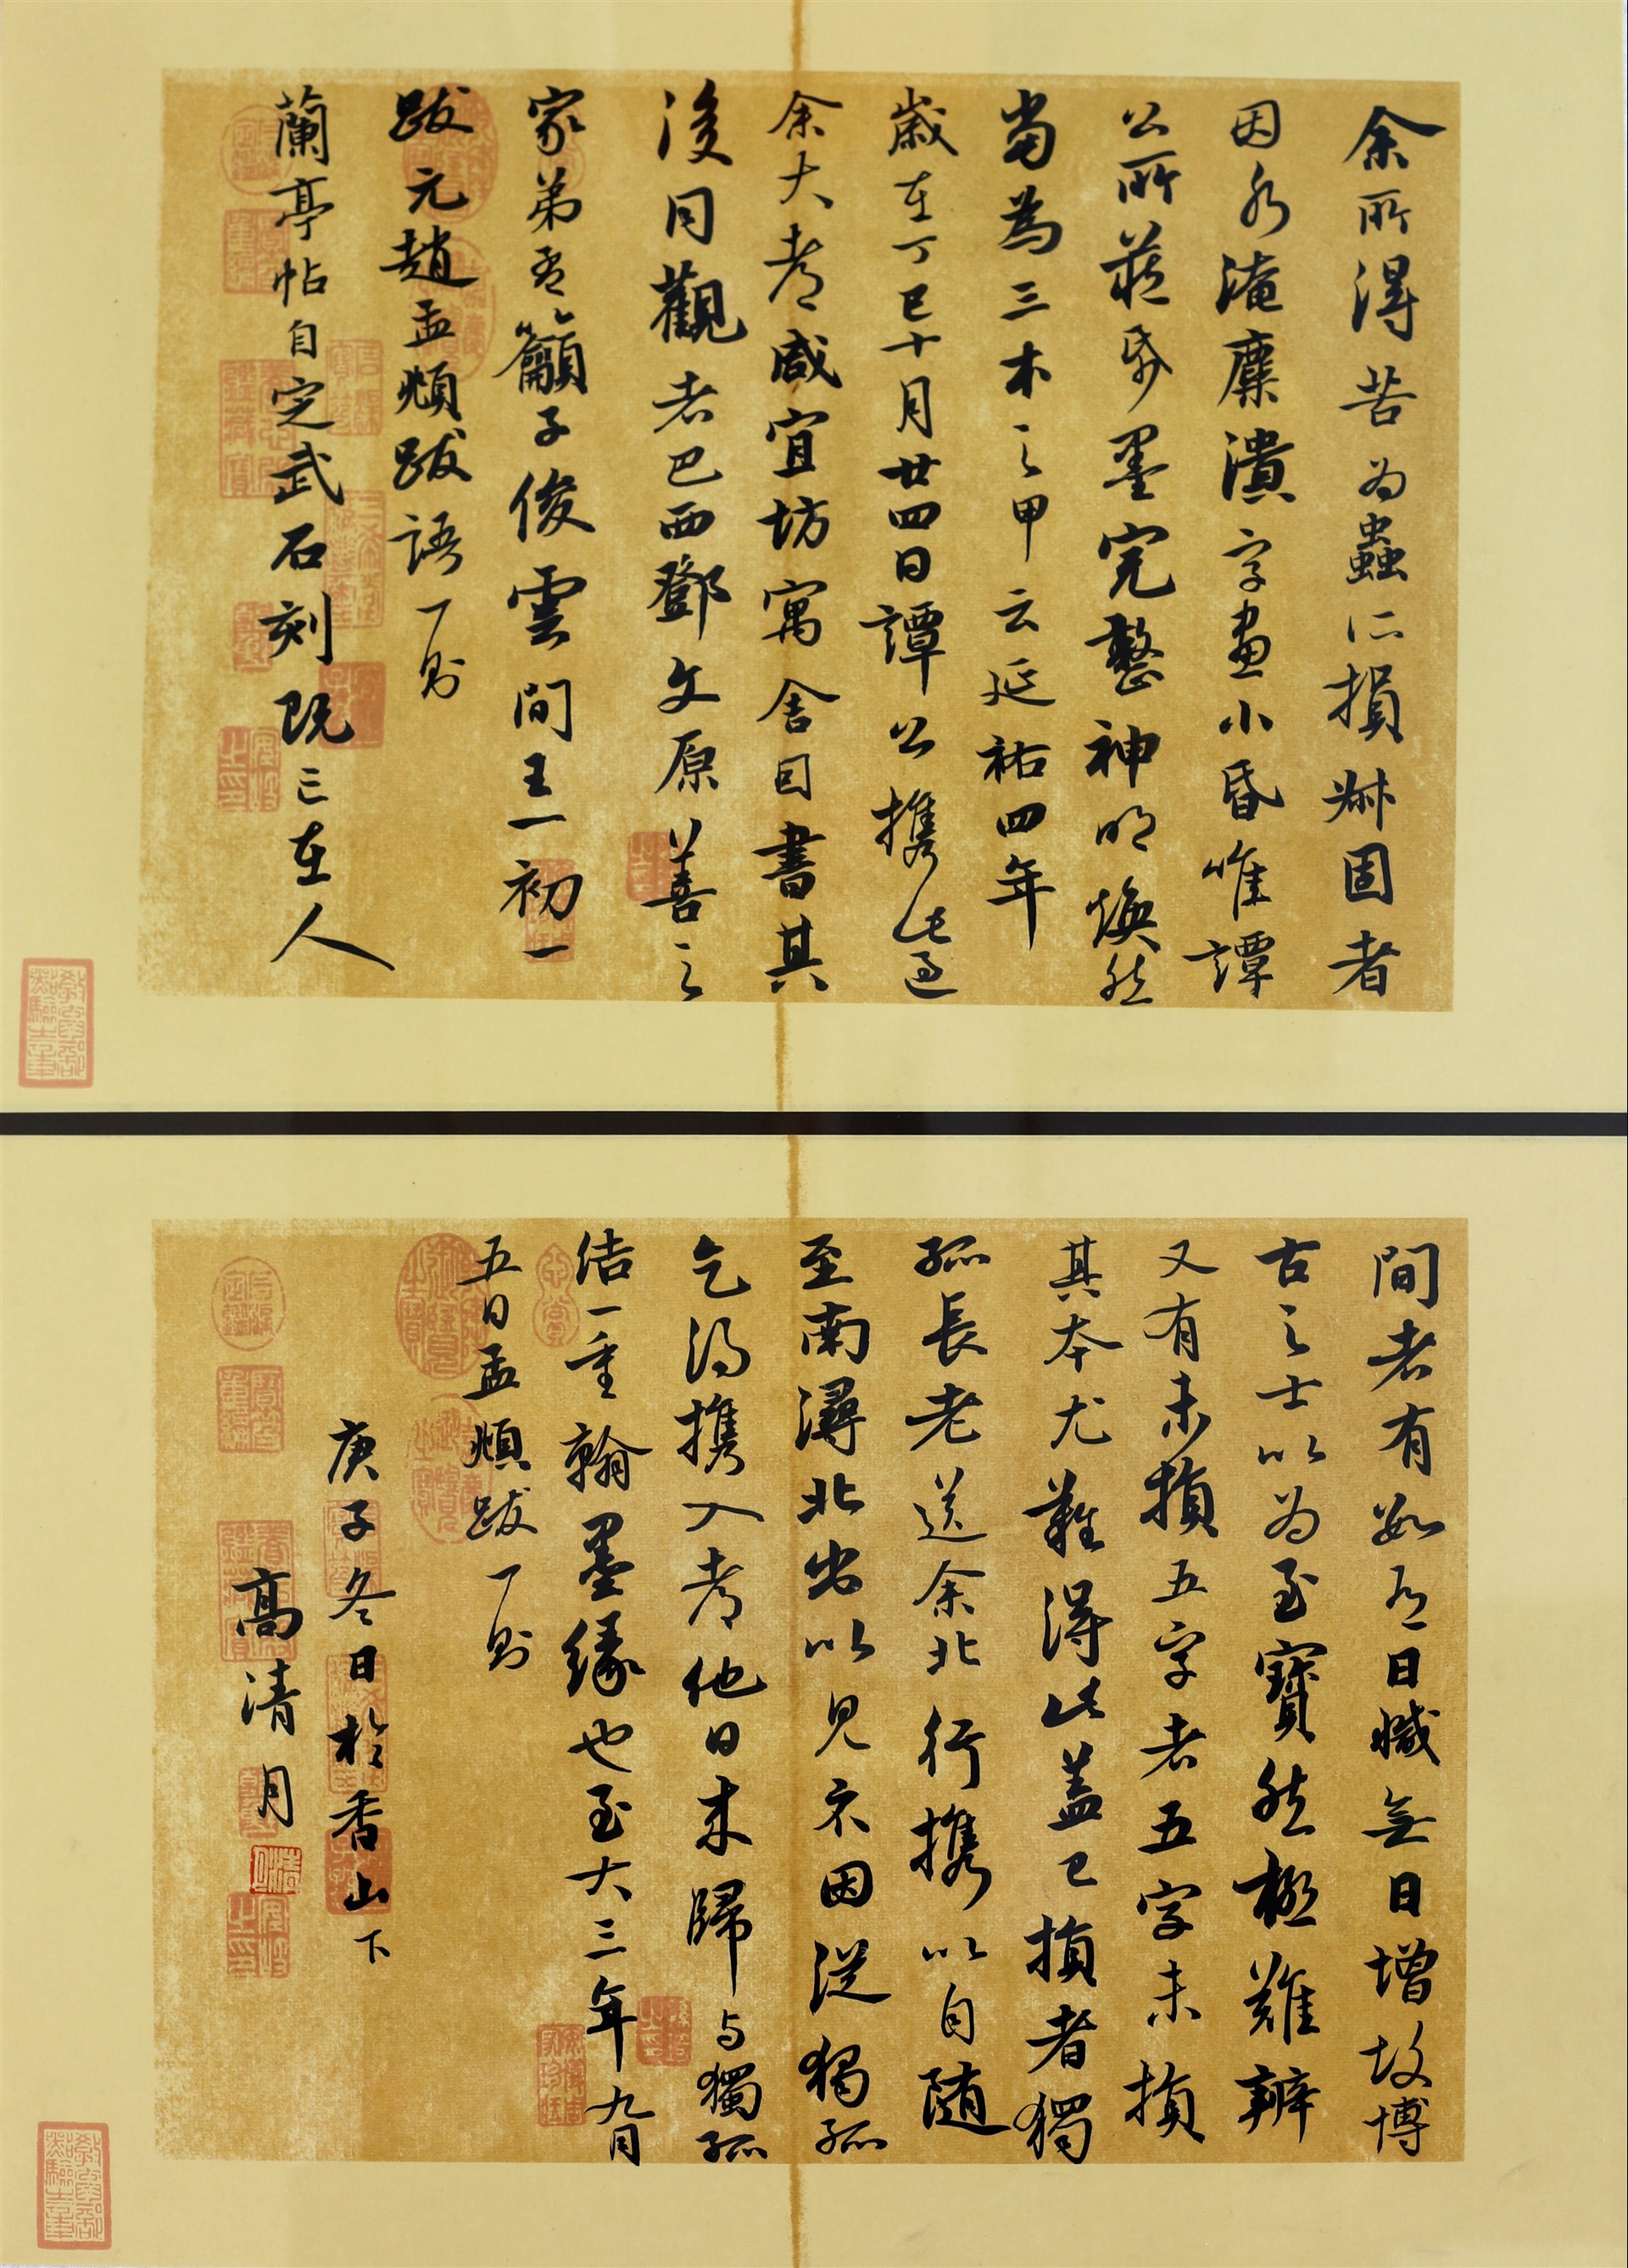 余所得苦为蟲所損㪚固者
因水淹麋潰字畫小昏唯譚
公所藏紙墨完整神明煥然
當為三本之甲云延祐四年
歲在丁巳十月廿四日譚公攜此過
余大都咸宜坊寓舍因書其
後同觀者巴西鄧文原善之
家弟孟籲子俊雲間王一初一
跋元趙孟頫跋語一則
蘭亭帖自定武石刻既亡在人
間者有數有日減無日增故博
古之士以为至寶然極難辨
又有未損五字者五字未損
其本尤難得此蓋已損者獨
孤長老送余北行攜以自隨
至南潯北出以見示因從獨孤
乞得攜入都他日來歸与獨孤
结一重翰墨缘也至大三年九月
五日孟頫跋一則
庚子冬日於香山下
高清月